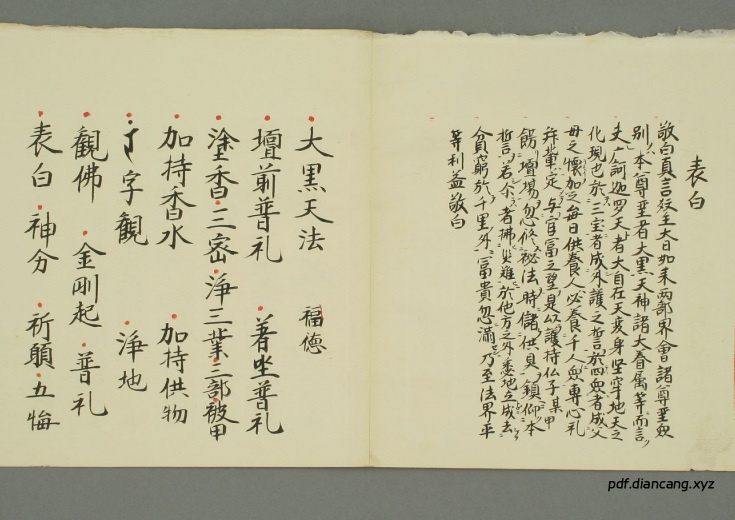 表白
敬白真言教主大日如来両部界會諸尊聖衆
別本尊聖者大黒天神諸大眷属等而言
夫摩訶迦罗天者大自在天変身坚牢地天之
化現也於三宝者成外護之誓言於四衆者成父
母之懐加之每日供養人必養千人衆専心礼
拜輩定与官冨之望是以護持仏子某甲
餝壇場忽修秘法時儲供具鎮仰本
誓言若尓者拂災難於他方之外委地立成去
貧窮於千里外冨貴忽満乃至法界平
等利益敬白
大黒天法 福徳
壇前普礼 着坐普礼
塗香三密浄三業三部被甲
加持香水 加持供物
字観 浄地
観佛 金剛起 普礼
表白 神分 祈願 五悔
pdf.diancang.xyz